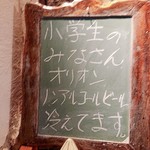 小学生の
みなさん
オリオン
ノンアルコールビール
冷えてます。